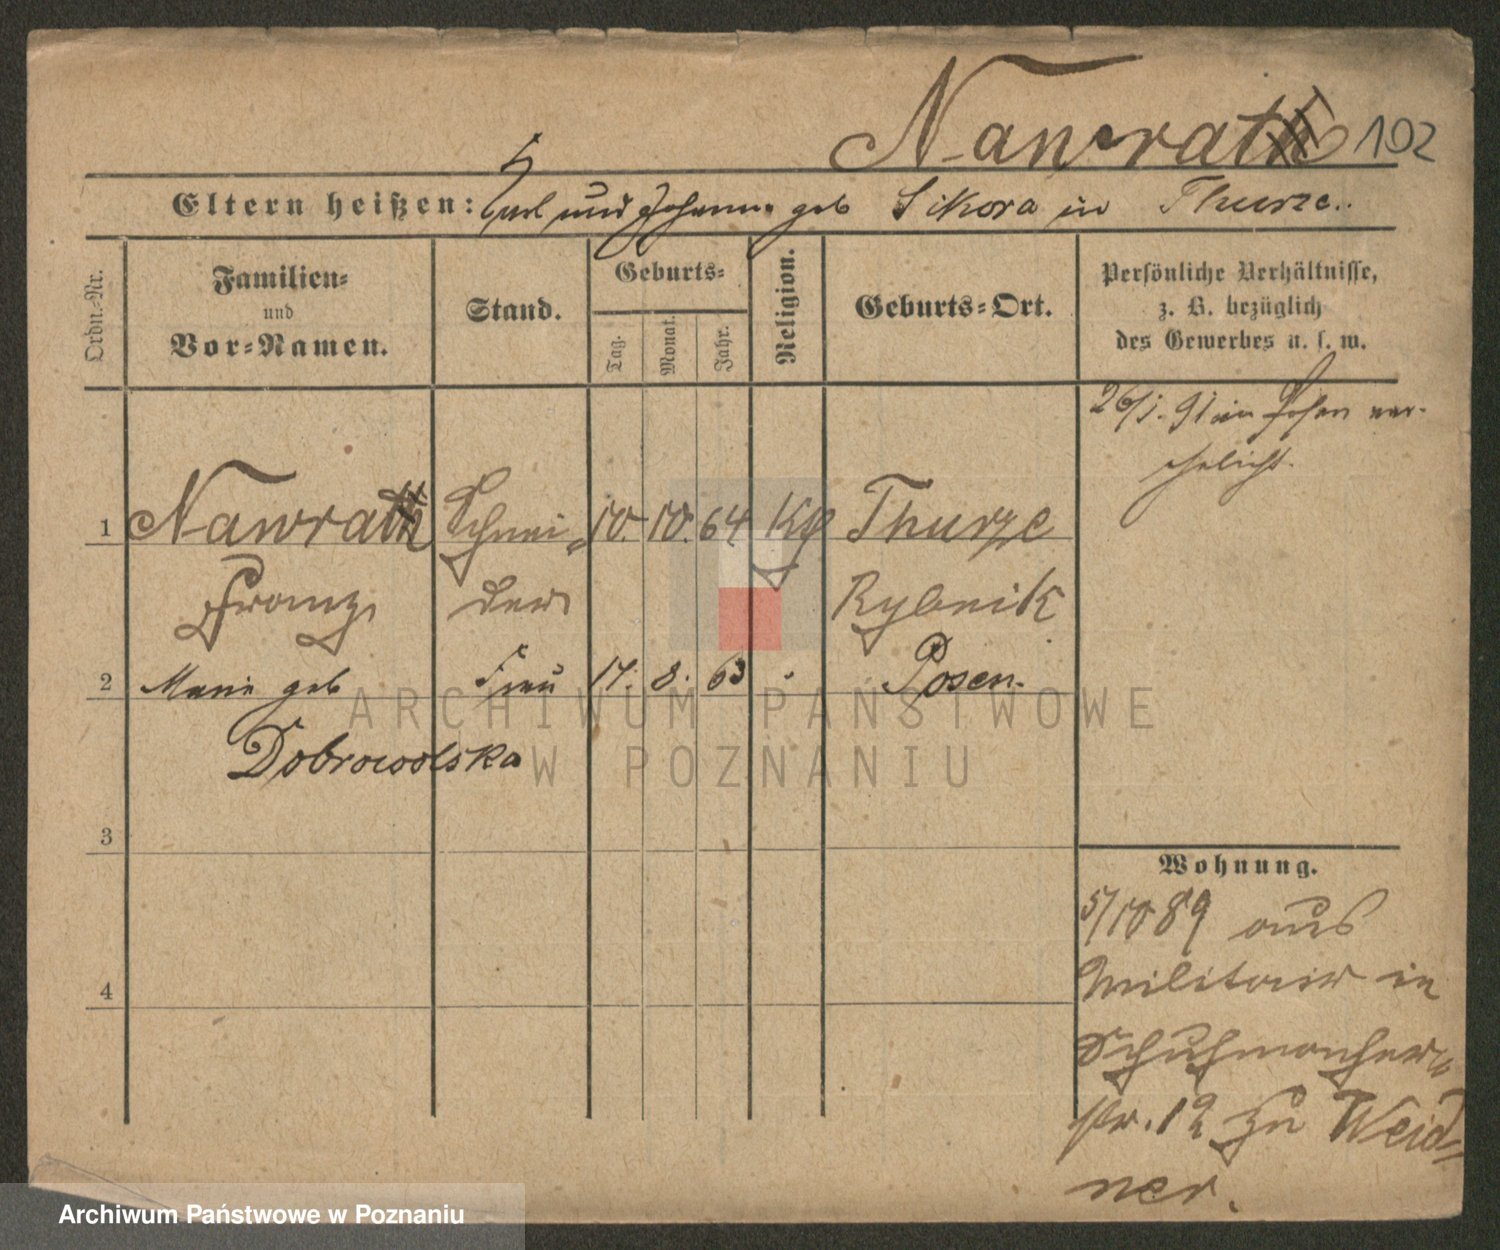 Nawrath 102
Eltern heißen: Carl und Johanna geb Sikora in Thurze.
Ordn.-Nr.
Familien-
und
Vor-Namen.
Stand.
Geburts-
Tag.
Monat.
Jahr.
Religion.
Geburts-Ort.
Persönliche Verhältnisse,
z. B. bezüglich
des Gewerbes u. s. w.
26/1. 91 in Posen ver-
ehelicht.
1 Nawrath Schnei- 10. 10. 64 Kth Thurze
Franz der Rybnik
2 Marie geb Frau 17. 8. 63 Posen.
Dobrowolska
3
4
Wohnung.
5/10 89 aus
Militair in
Schuhmacher-
str. 12 zu Weid-
ner.
ARCHIWUM PAŃSTWOWE
W POZNANIU
Archiwum Państwowe w Poznaniu